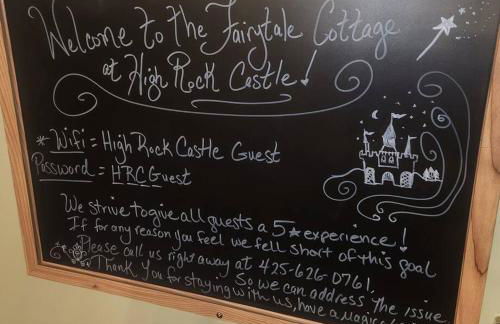 Welcome to the Fairytale Cottage
at High Rock Castle!
* Wifi = High Rock Castle Guest
Password = HRCGuest
We strive to give all guests a 5★ experience!
If for any reason you feel we fell short of this goal
Please call us right away at 425-626-0761.
So we can address the issue
Thank you for staying with us, have a Magical